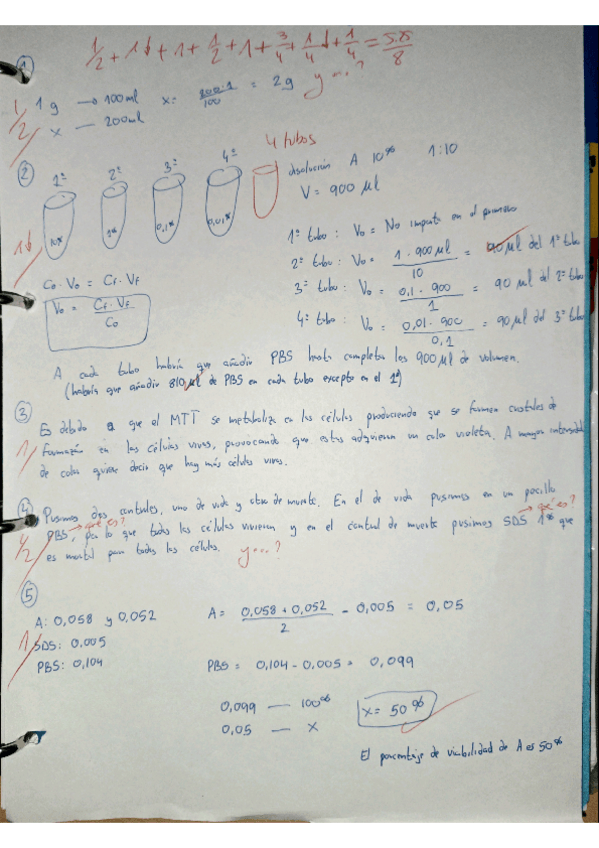 1/2 + 1b + 1 + 1/2 + 1 + 3/4 + 1b/4 + 1/4 = 5.85/8
①
1/2
1g → 100ml x = 200·1/100 = 2g y...?
x — 200ml
② 1º 2º 3º 4º 4 tubos
disolución A 10% 1:10
V = 900 µl
10% 1% 0,1% 0,01%
1b
1º tubo: V₀ = No importa en el primero
2º tubo: V₀ = 1·900µl/10 = 90µl del 1º tubo
C₀·V₀ = Cf·Vf
3º tubo: V₀ = 0,1·900/1 = 90 µl del 2º tubo
V₀ = Cf·Vf/C₀
4º tubo: V₀ = 0,01·900/0,1 = 90µl del 3º tubo
A cada tubo habría que añadir PBS hasta completar los 900µl de volumen.
(habría que añadir 810µl de PBS en cada tubo excepto en el 1º)
③
Es debido a que el MTT se metaboliza en las células produciendo que se formen cristales de
1
formazán en las células vivas, provocando que estas adquieran un color violeta. A mayor intensidad
de color quiere decir que hay más células vivas.
④ Pusimos dos controles, uno de vida y otro de muerte. En el de vida pusimos en un pocillo
→ qué es? → qué es?
1/2
PBS, por lo que todas las células vivieron y en el control de muerte pusimos SDS 1% que
es mortal para todas las células. y...?
⑤
A: 0,058 y 0,052 A = 0,058 + 0,052/2 - 0,005 = 0,05
1
SDS: 0.005
PBS: 0,104 PBS = 0,104 - 0,005 = 0,099
0,099 — 100% x = 50%
0,05 — x
El porcentaje de viabilidad de A es 50%